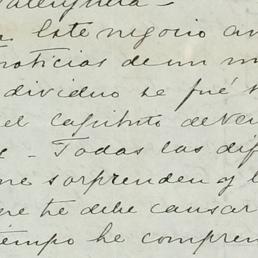 Este negocio an
noticias de un m
dividuo se fué
el capítulo de Ven
- Todas las dif
me sorprenden y l
re te debe causar
tiempo he compren